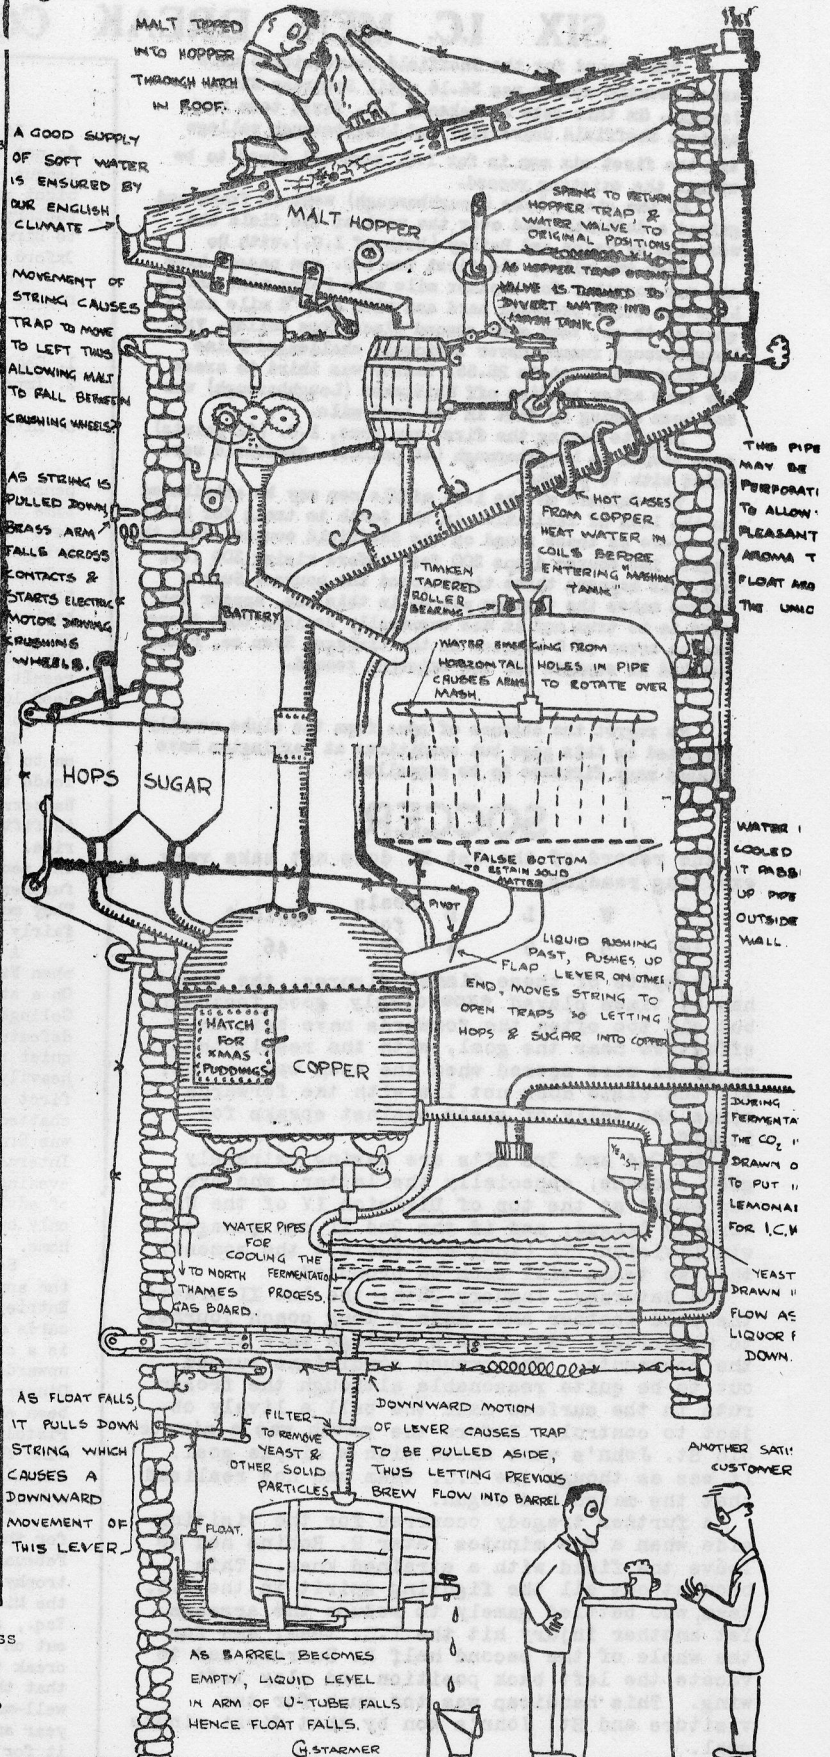 MALT TIPPED
INTO HOPPER
THROUGH HATCH
IN ROOF.
A GOOD SUPPLY
OF SOFT WATER
IS ENSURED BY
OUR ENGLISH
CLIMATE
MALT HOPPER
SPRING TO RETURN
HOPPER TRAP &
WATER VALVE TO
ORIGINAL POSITIONS
AS HOPPER TRAP OPENS
VALVE IS TURNED TO
DIVERT WATER INTO
MASH TANK
MOVEMENT OF
STRING CAUSES
TRAP TO MOVE
TO LEFT THUS
ALLOWING MALT
TO FALL BETWEEN
CRUSHING WHEELS
AS STRING IS
PULLED DOWN
BRASS ARM
FALLS ACROSS
CONTACTS &
STARTS ELECTRIC
MOTOR DRIVING
CRUSHING
WHEELS.
BATTERY
HOT GASES
FROM COPPER
HEAT WATER IN
COILS BEFORE
ENTERING "MASHING
TANK"
THIS PIPE
MAY BE
PERFORATI
TO ALLOW
PLEASANT
AROMA T
FLOAT ARO
THE UNIO
TIMKEN
TAPERED
ROLLER
BEARING
WATER EMERGING FROM
HORIZONTAL HOLES IN PIPE
CAUSES ARMS TO ROTATE OVER
MASH.
HOPS
SUGAR
FALSE BOTTOM
TO RETAIN SOLID
MATTER
PIVOT
FLAP
LIQUID RUSHING
PAST, PUSHES UP
LEVER, ON OTHER
END MOVES STRING TO
OPEN TRAPS SO LETTING
HOPS & SUGAR INTO COPPER
WATER I
COOLED
IT PASSI
UP PIPE
OUTSIDE
WALL.
HATCH
FOR
XMAS
PUDDINGS
COPPER
YEAST
DURING
FERMENTA
THE CO2 I
DRAWN O
TO PUT I
LEMONA
FOR I.C.W
WATER PIPES
FOR
COOLING THE
FERMENTATION
PROCESS.
TO NORTH
THAMES
GAS BOARD.
YEAST
DRAWN I
FLOW AS
LIQUOR F
DOWN.
AS FLOAT FALLS
IT PULLS DOWN
STRING WHICH
CAUSES A
DOWNWARD
MOVEMENT OF
THIS LEVER
FILTER
TO REMOVE
YEAST &
OTHER SOLID
PARTICLES
DOWNWARD MOTION
OF LEVER CAUSES TRAP
TO BE PULLED ASIDE,
THUS LETTING PREVIOUS
BREW FLOW INTO BARREL
ANOTHER SATI
CUSTOMER
FLOAT.
AS BARREL BECOMES
EMPTY, LIQUID LEVEL
IN ARM OF U-TUBE FALLS
HENCE FLOAT FALLS.
C.H.STARMER